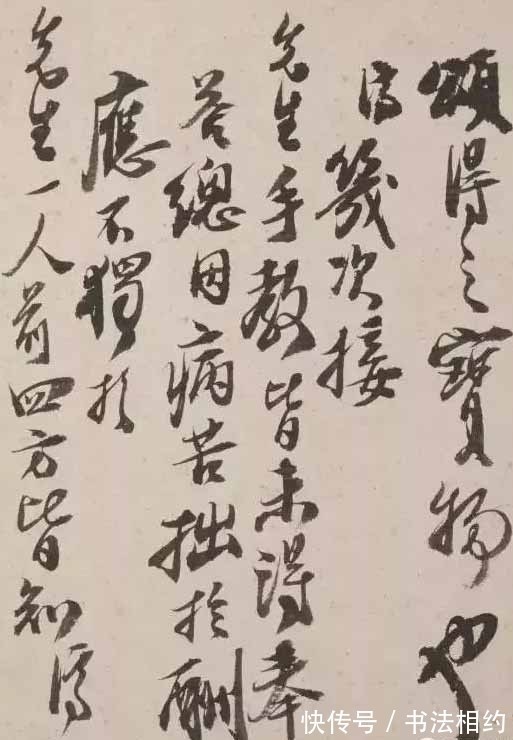 頌得之寶物也
濟幾次接
先生手教皆未得奉
荅總因病苦拙於酬
應不獨於
先生一人前四方皆知濟
快传号 / 书法相约